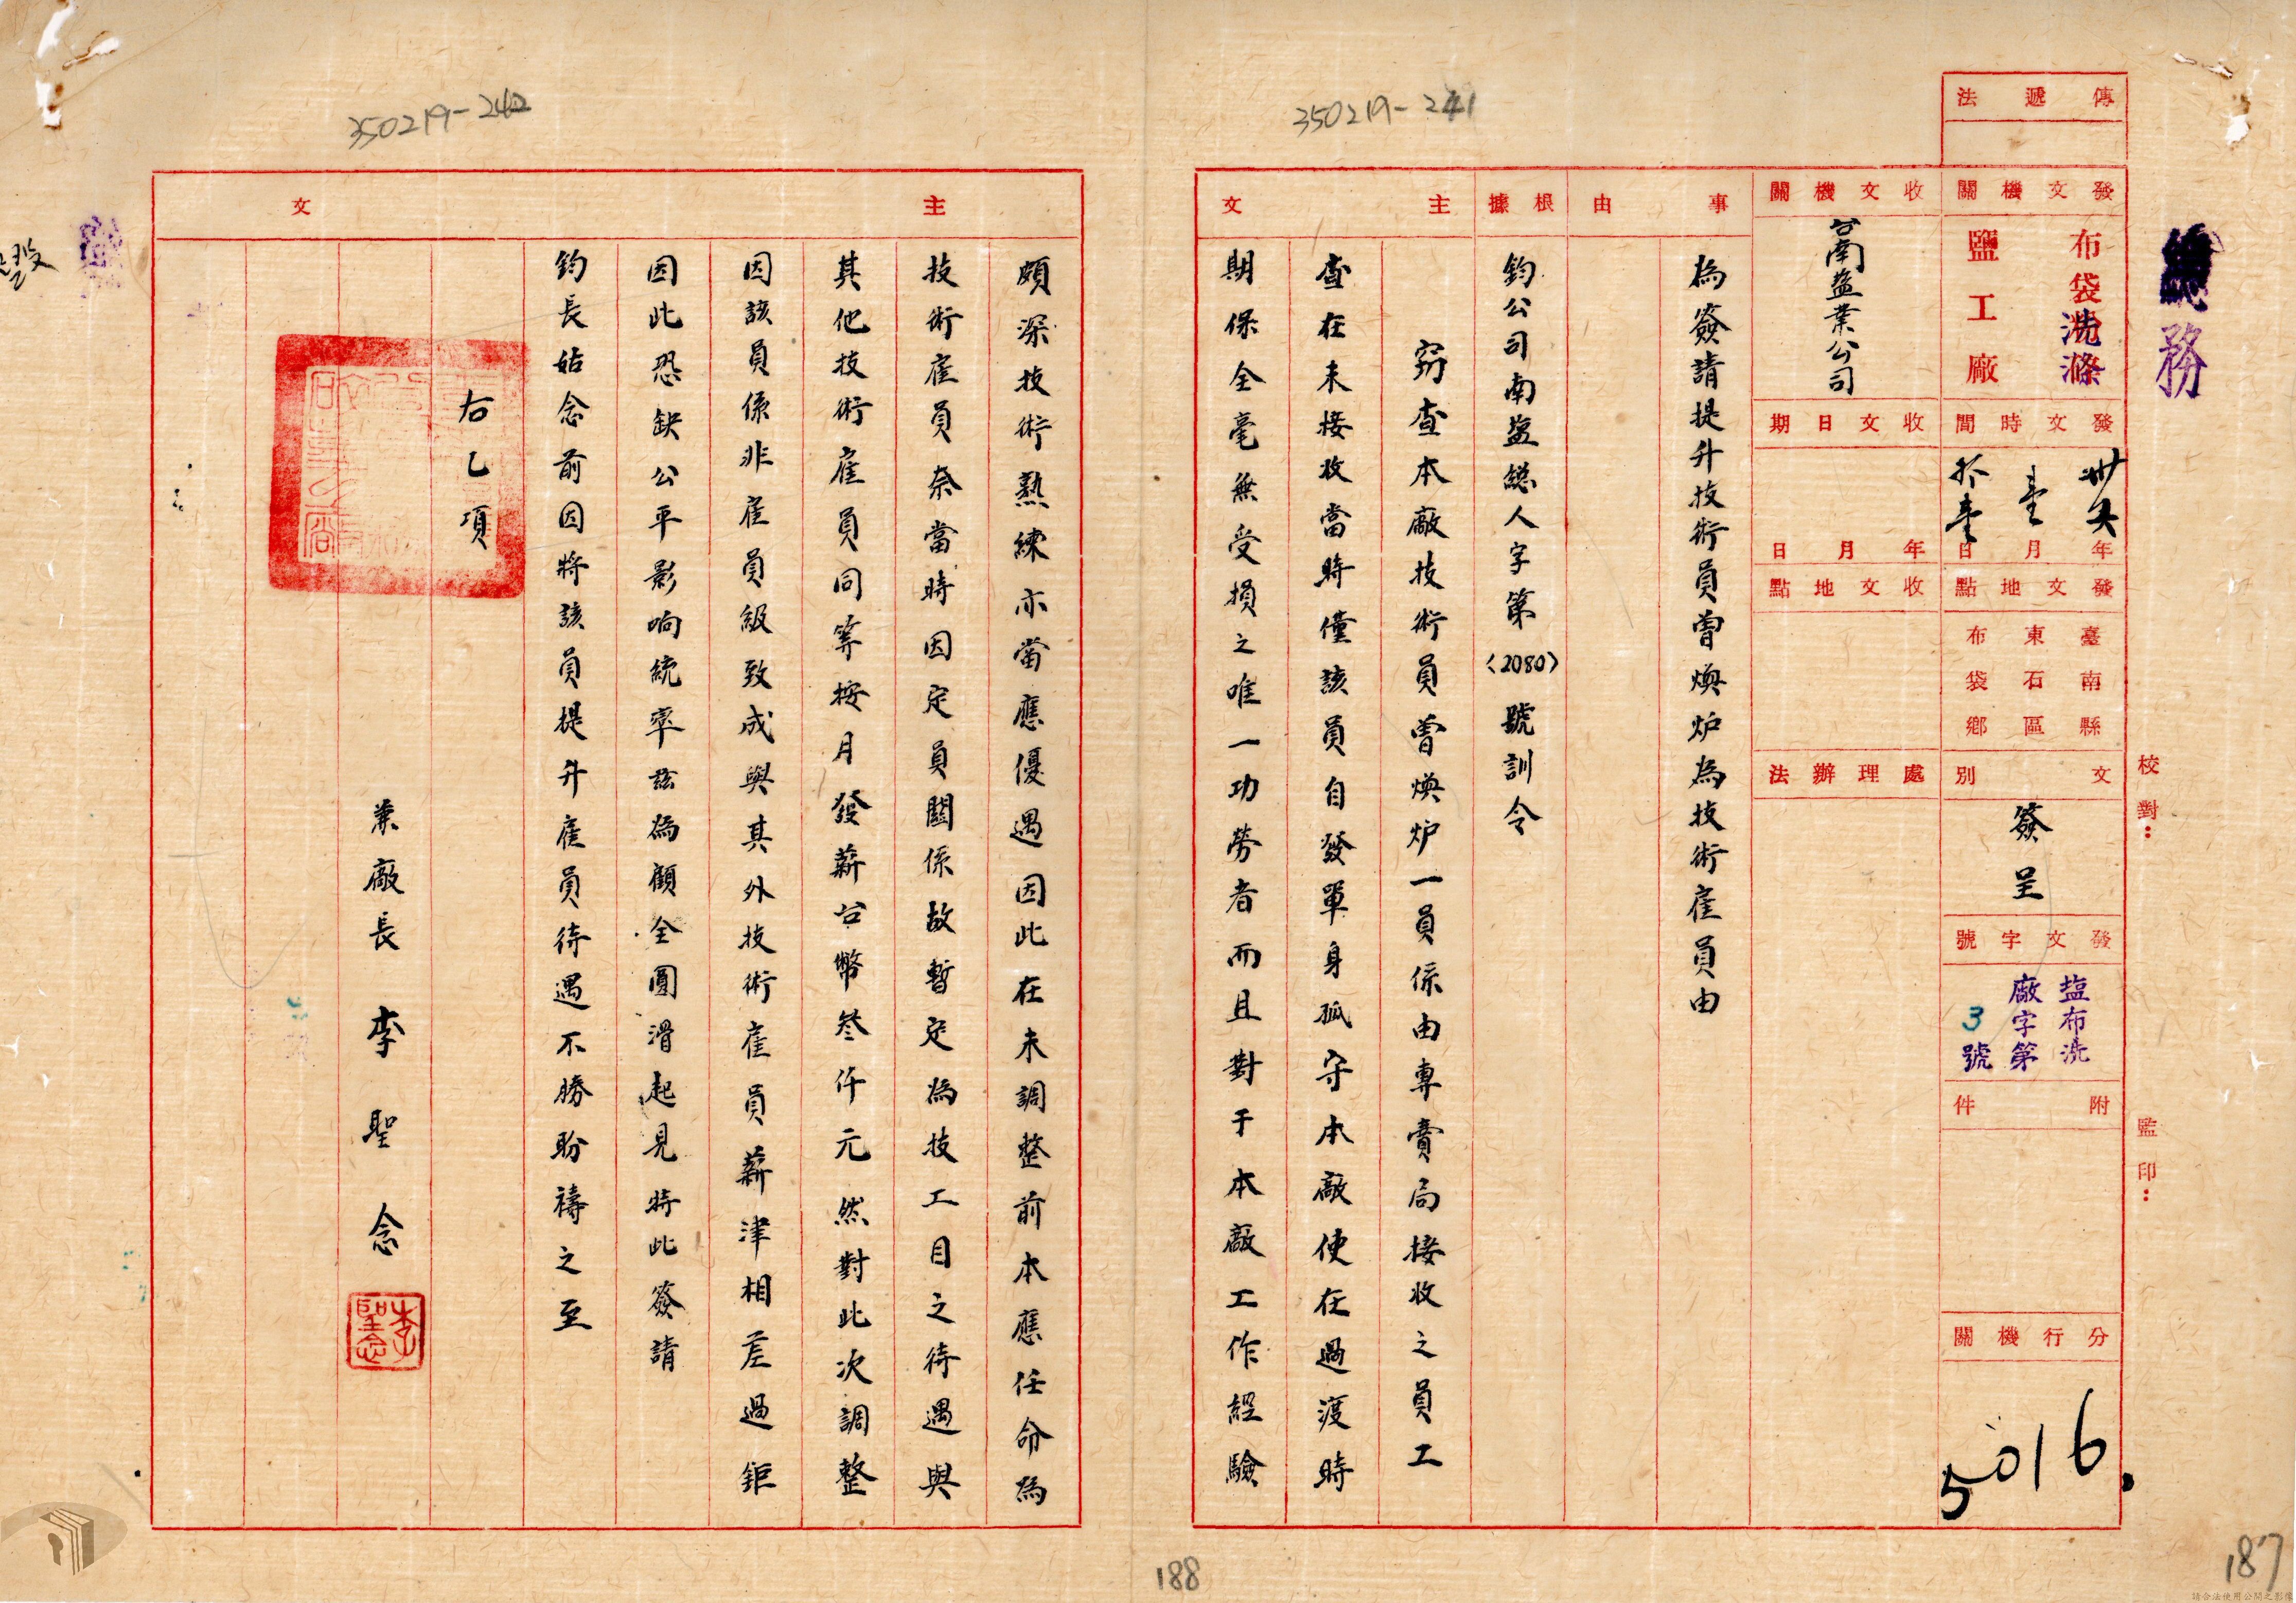 350219-241
350219-242
總務
校對：
監印：
傳遞法
發文機關
布袋洗滌
鹽工廠
發文時間
卅六年
壹月
拾壹日
發文地點
臺南縣
東石區
布袋鄉
文別
簽呈
發文字號
塩布洗
廠字第
3號
附件
分行機關
5016.
收文機關
台南塩業公司
收文日期
年月日
收文地點
處理辦法
事由
為簽請提升技術員曾煥炉為技術雇員由
根據
鈞公司南塩總人字第〈2080〉號訓令
主文
竊查本廠技術員曾煥炉一員係由專賣局接收之員工
查在未接收當時僅該員自發單身孤守本廠使在過渡時
期保全毫無受損之唯一功勞者而且對于本廠工作經驗
主文
頗深技術熟練亦當應優遇因此在未調整前本應任命為
技術雇員奈當時因定員關係故暫定為技工目之待遇與
其他技術雇員同等按月發薪台幣叁仟元然對此次調整
因該員係非雇員級致成與其外技術雇員薪津相差過鉅
因此恐缺公平影响統率茲為顧全圓滑起見特此簽請
鈞長姑念前因將該員提升雇員待遇不勝盼禱之至
右乙項
兼廠長李聖念
李聖念
187
188
請合法使用公開之影像